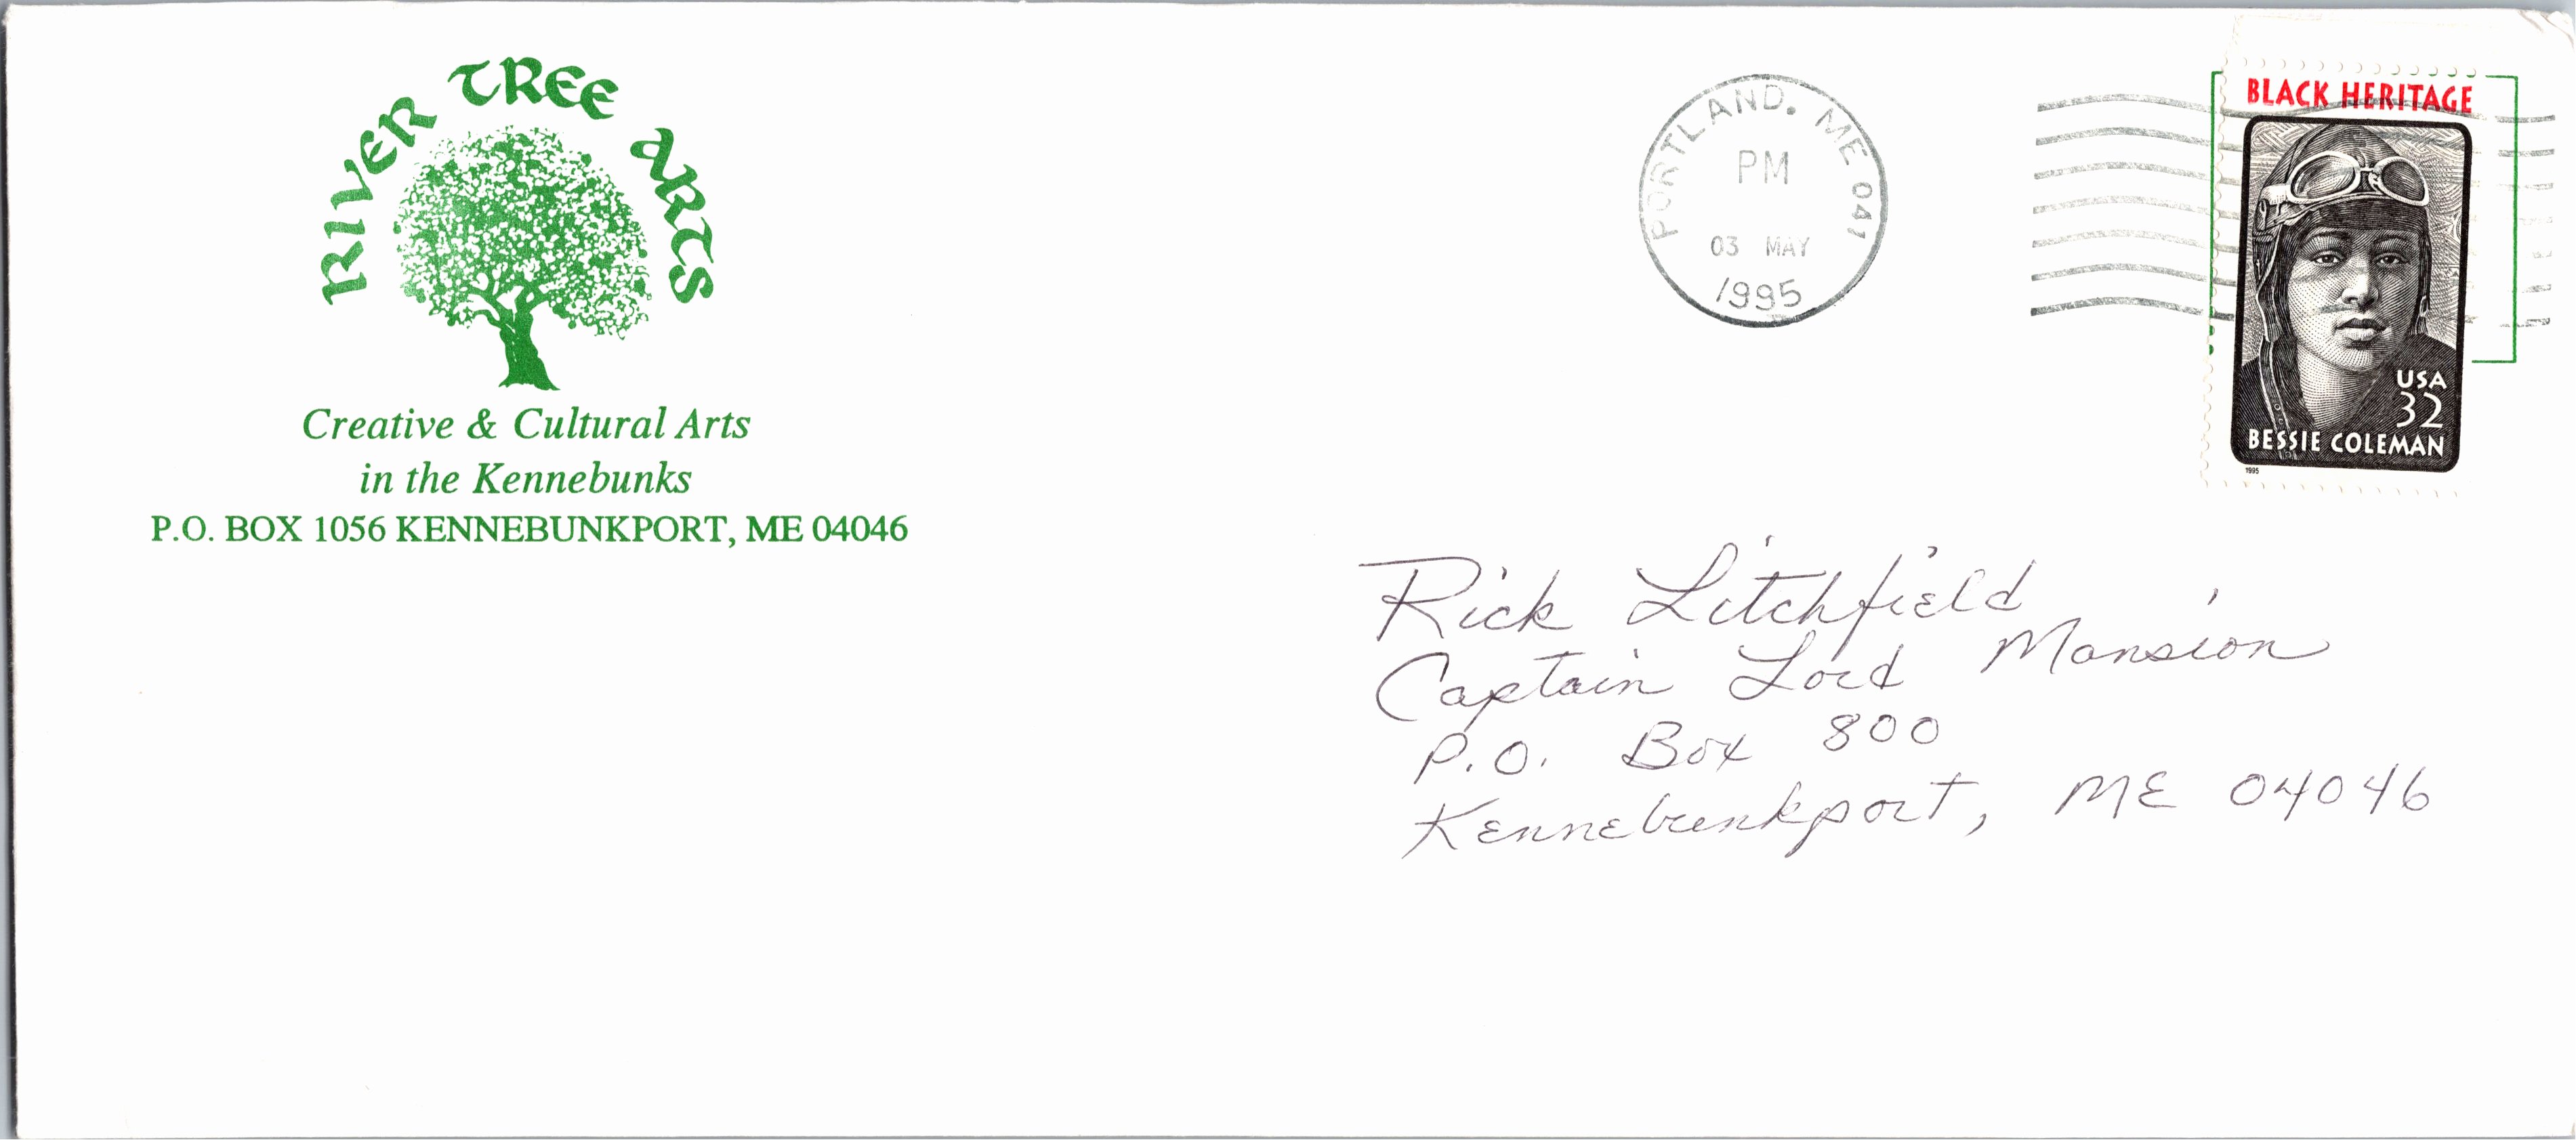 RIVER TREE ARTS
Creative & Cultural Arts
in the Kennebunks
P.O. BOX 1056 KENNEBUNKPORT, ME 04046
PORTLAND, ME 041
PM
03 MAY
1995
BLACK HERITAGE
USA
32
BESSIE COLEMAN
1995
Rick Litchfield
Captain Lord Mansion
P.O. Box 800
Kennebunkport, ME 04046